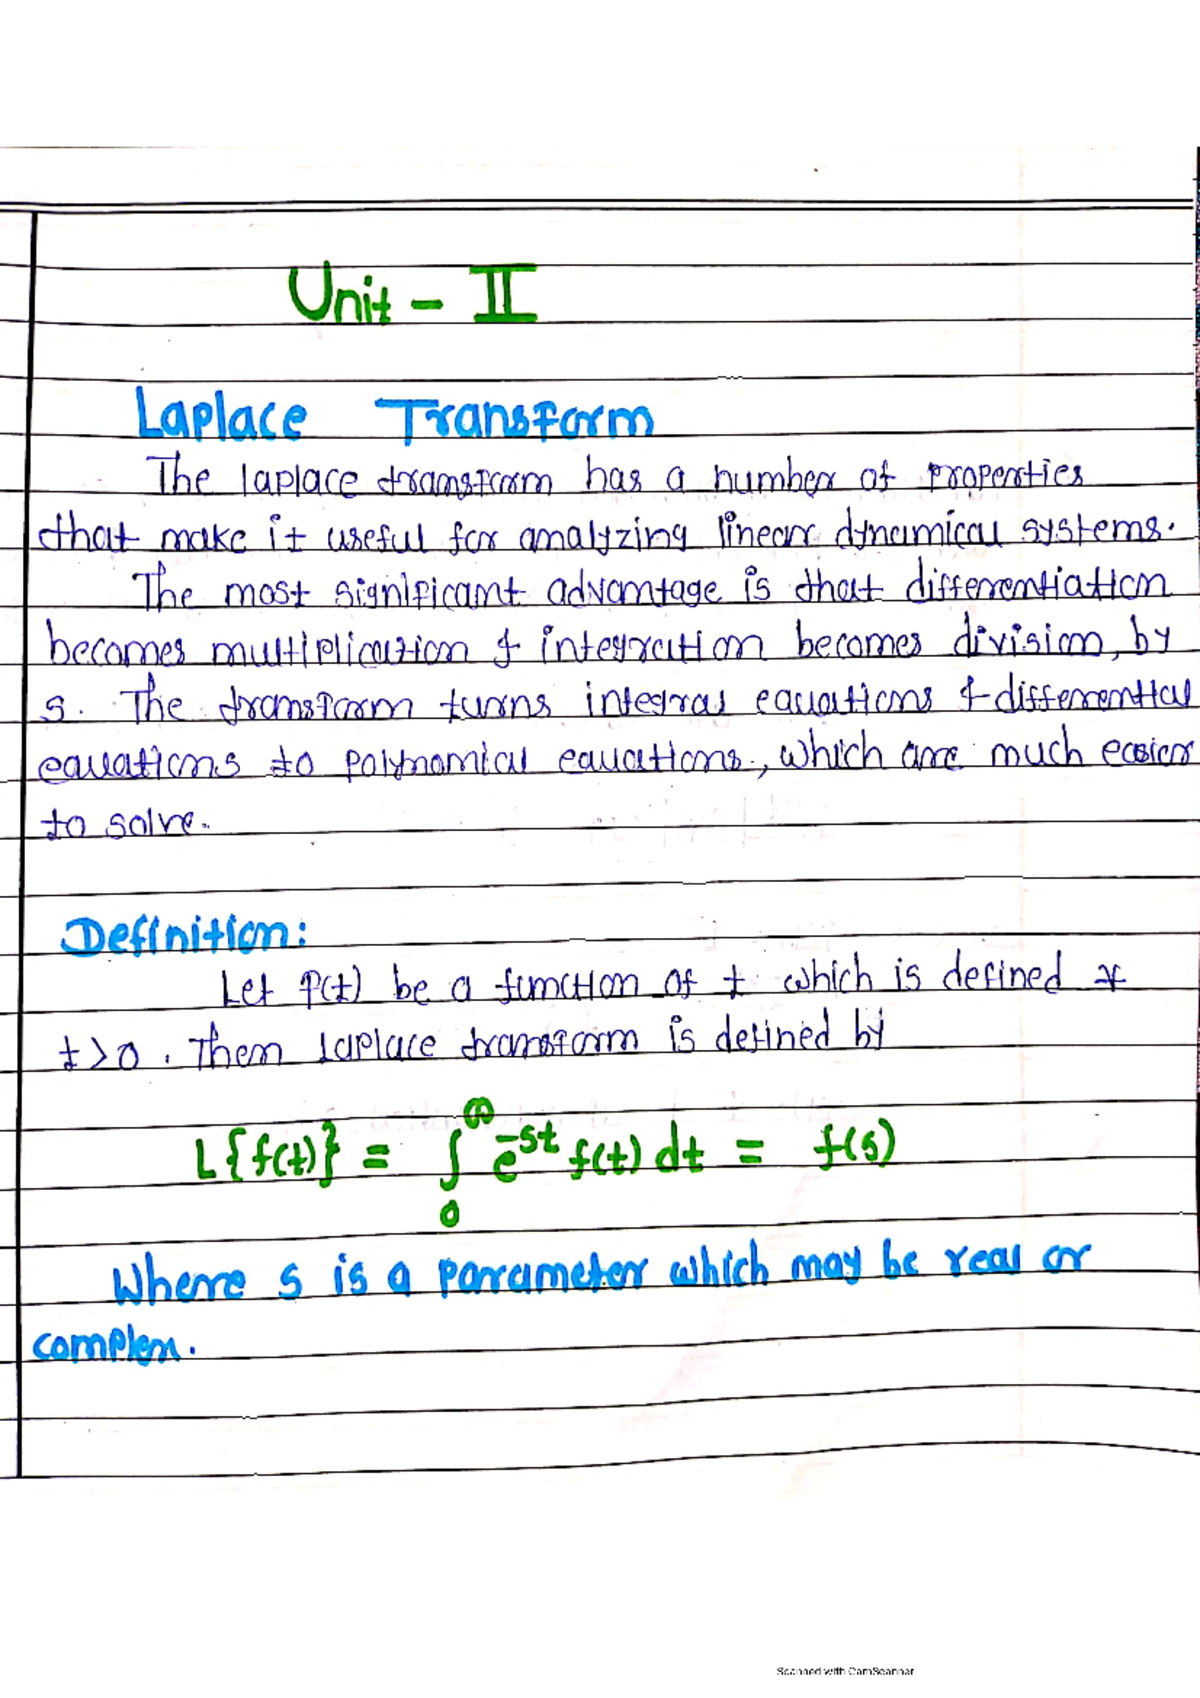 Unit - II
Laplace Transform
The laplace transform has a number of properties
that make it useful for analyzing linear dynamical systems.
The most significant advantage is that differentiation
becomes multiplication & integration becomes division, by
s. The transform turns integral equations & differential
equations to polynomial equations, which are much easier
to solve.
Definition:
Let f(t) be a function of t which is defined ∀
t>0. Then laplace transform is defined by
L{f(t)} = ∫₀^∞ e^-st f(t) dt = f(s)
Where s is a parameter which may be real or
complex.
Scanned with CamScanner